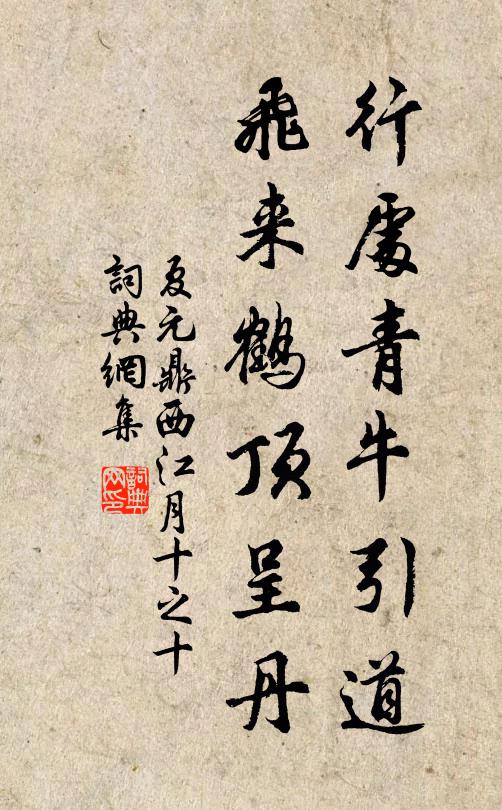 行處青牛引道
飛来鶴頂呈丹
夏元鼎西江月十之十
詞典網集
詞典网印